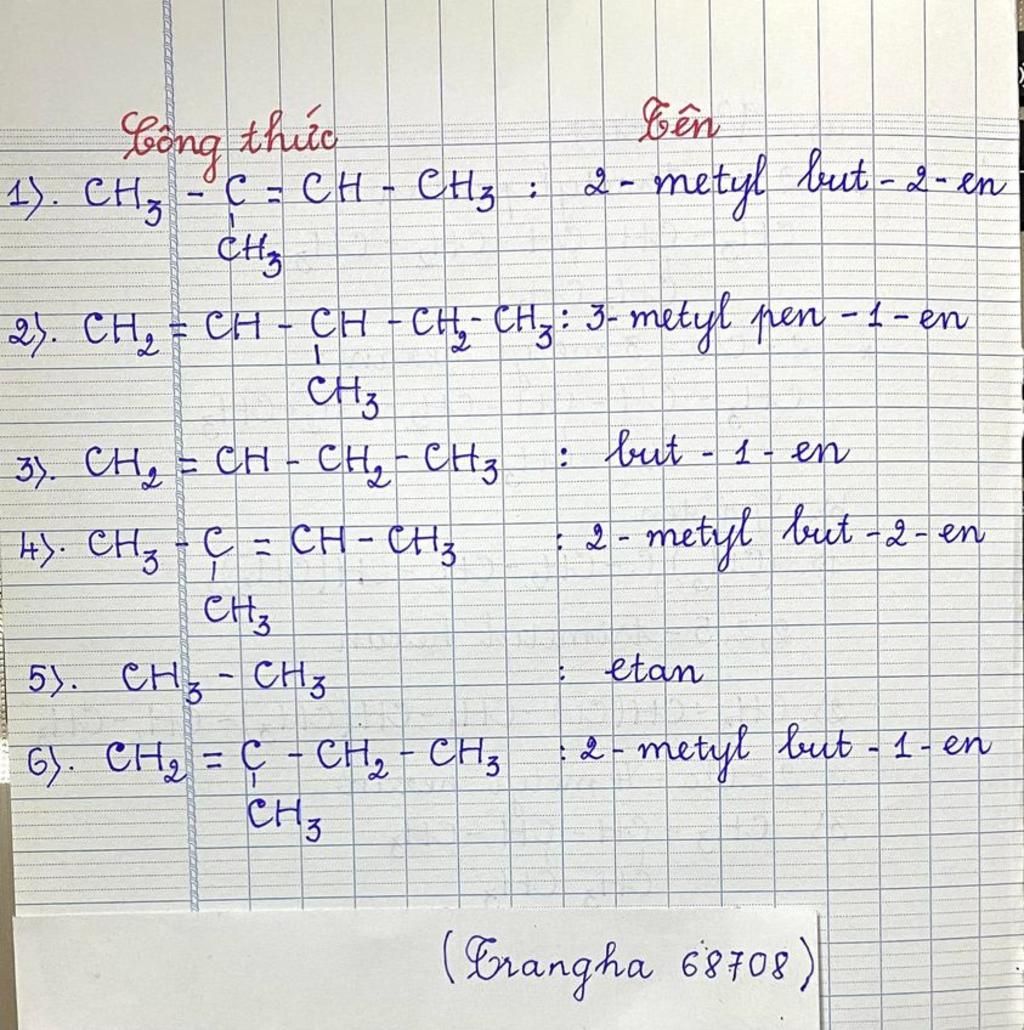 Công thức Tên
1). CH3 - C = CH - CH3 : 2 - metyl but - 2 - en
CH3
2). CH2 = CH - CH - CH2 - CH3 : 3 - metyl pen - 1 - en
CH3
3). CH2 = CH - CH2 - CH3 : but - 1 - en
4). CH3 - C = CH - CH3 : 2 - metyl but - 2 - en
CH3
5). CH3 - CH3 : etan
6). CH2 = C - CH2 - CH3 : 2 - metyl but - 1 - en
CH3
(Trangha 68708)